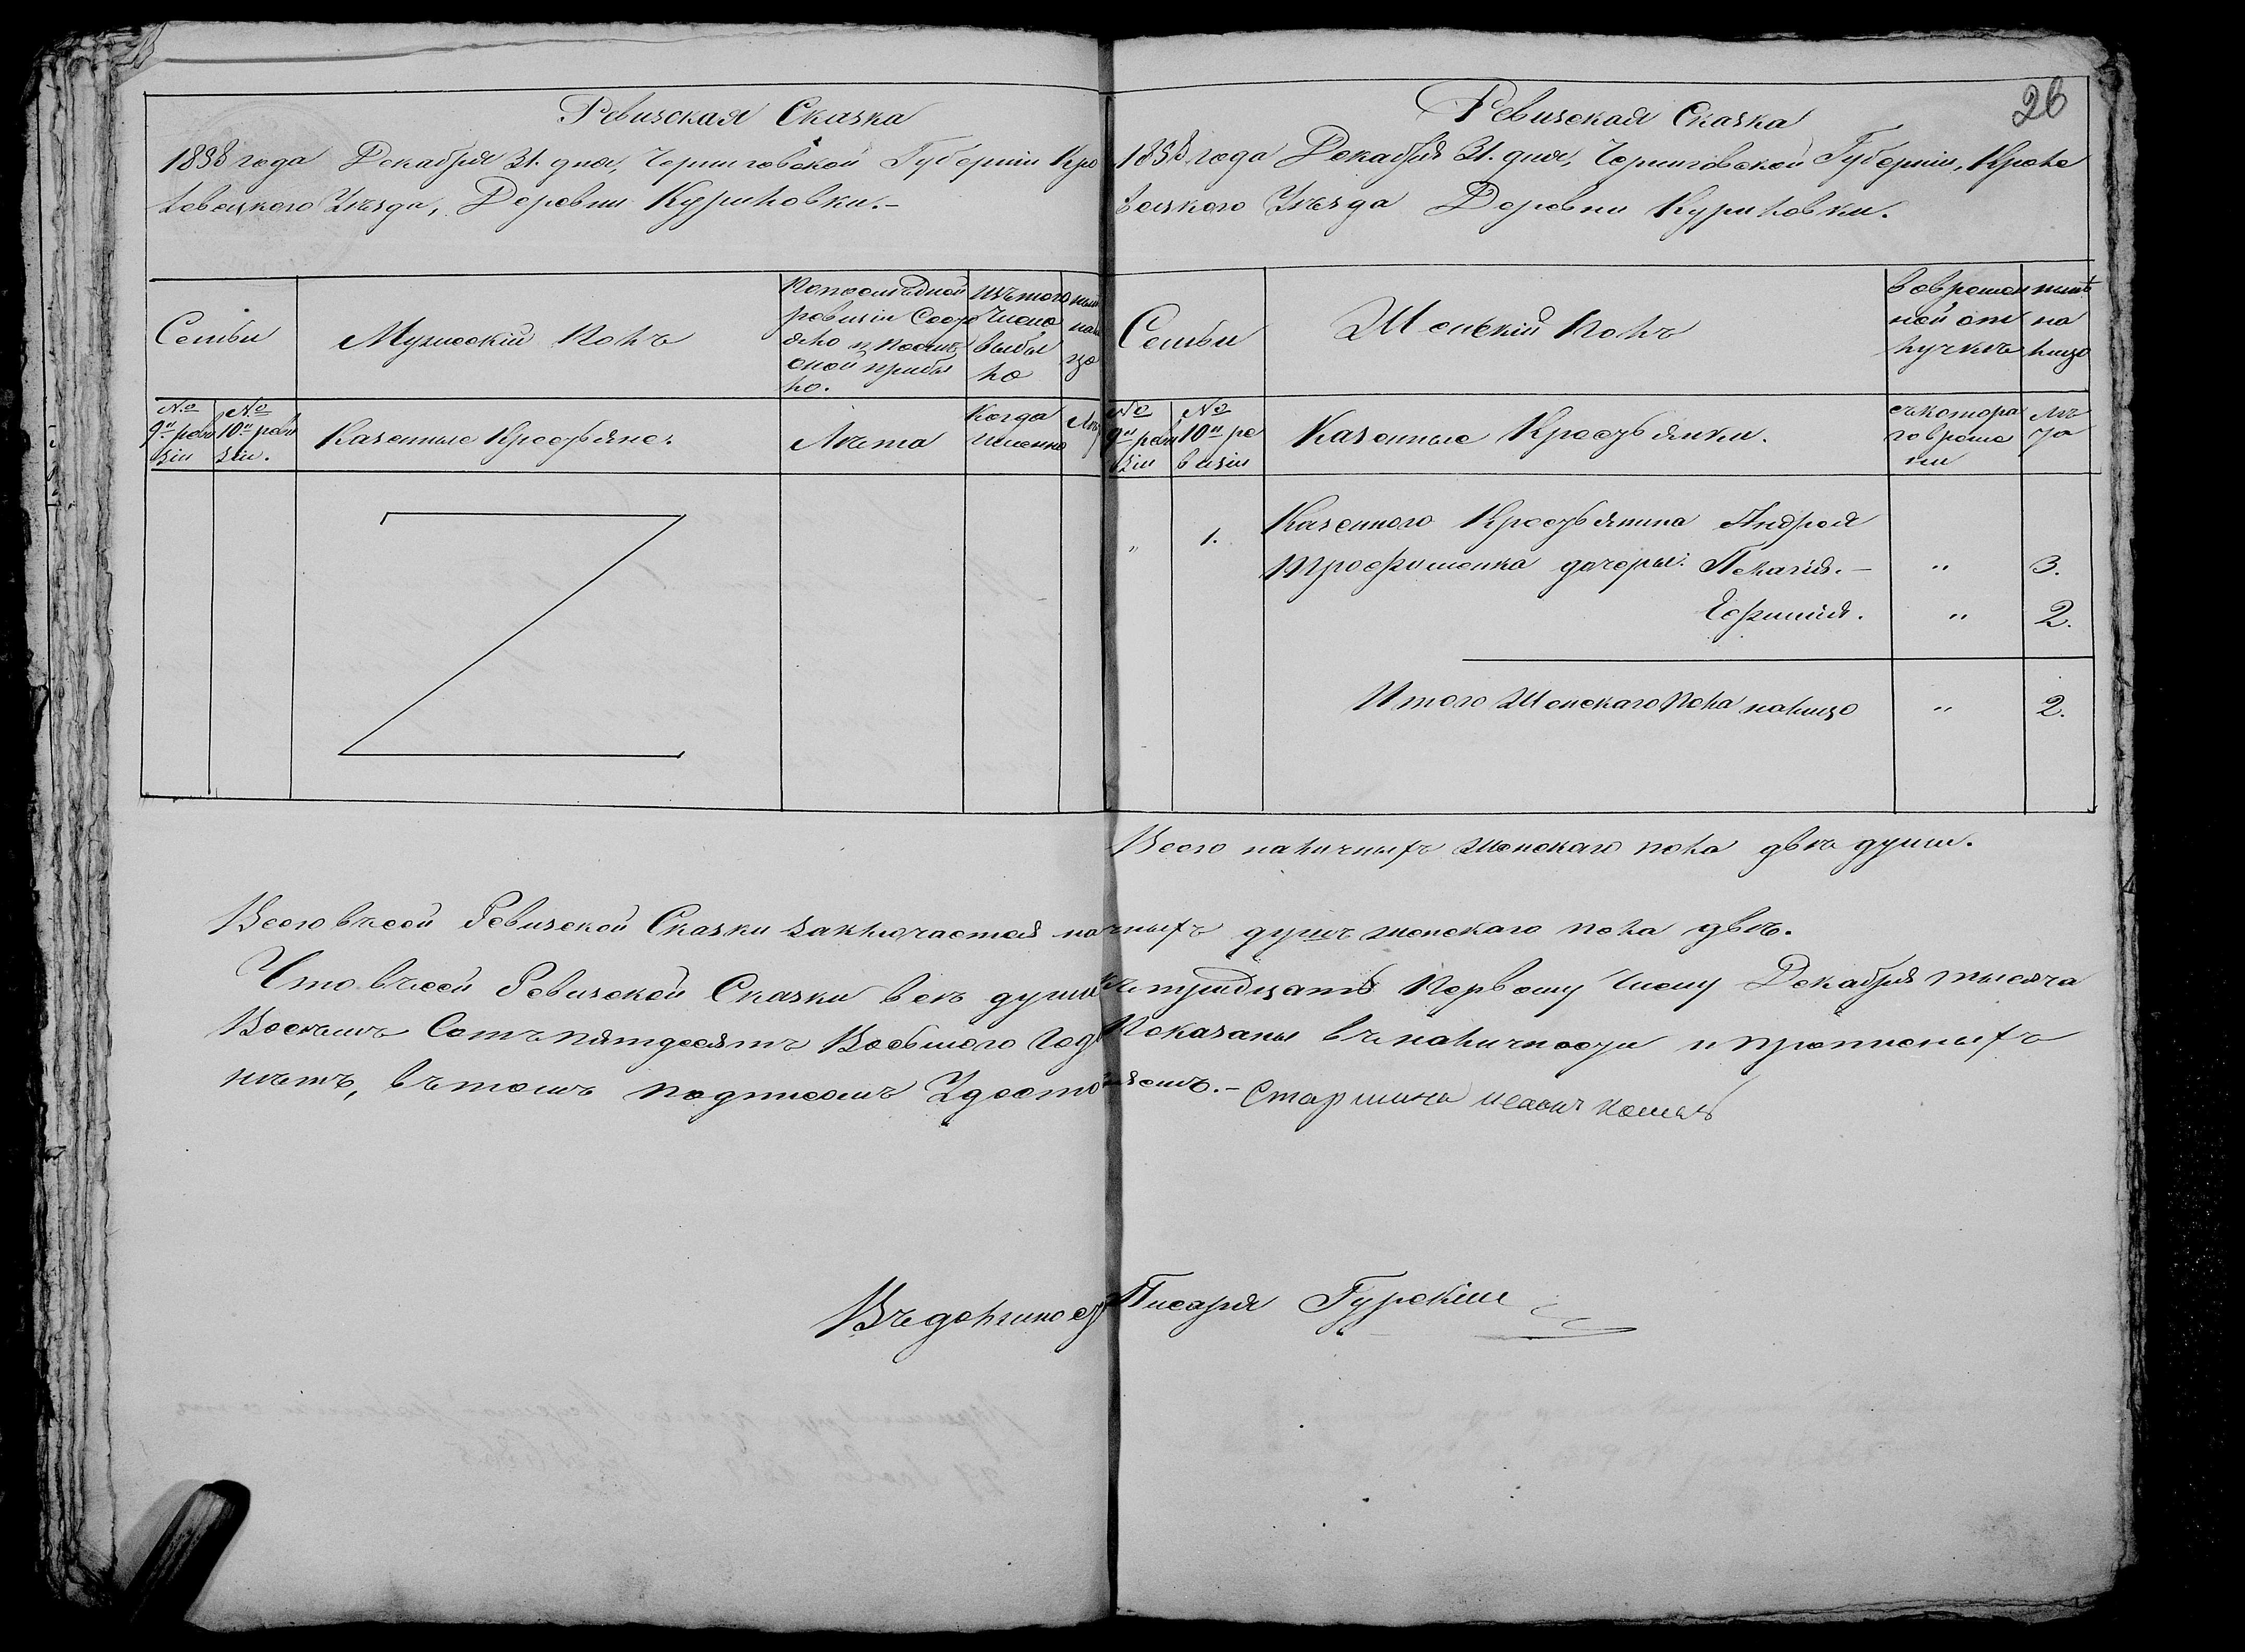 Ревизская Сказка
1858 года Декабря 31. дня, Черниговской Губерніи Кро
левецкого Уѣзда, Деревни Куриловки.-
Семьи
Мужескій Полъ
По последней
ревизіи Состо
яло и послѣ
оной прибы
ло.
Изъ того
Число
выбы
ло
ныне
нали
цо
№
9й реви
зіи
№
10й реви
зіи.
Казенные Крестьяне.
Лѣта
Когда
именно
Лѣта
26
Ревизская Сказка
1858 года Декабря 31. дня, Черниговской Губерніи, Кроле
вецкого Уѣзда Деревни Куриловки.
Семьи
Женскій Полъ
во времен
ной от
лучкѣ
нынѣ
на
лицо
№
9й реви
зіи
№
10й ре
визіи
Казенные Крестьянки.
съ котора
го време
ни
Лѣ
та
" 1. Казенного Крестьянина Андрея
Трофименка дочери: Пелагія.- " 3.
Ефимія. " 2.
Итого Женскаго Пола налицо " 2.
Всего наличныхъ Женскаго пола двѣ души.
Всего въ сей Ревизской Сказки заключается на чныхъ душъ женскаго пола двѣ.
Что въ сей Ревизской Сказки всѣ души къ тридцать Первому Числу Декабря тысяча
Восемъ Сотъ пятдесятъ Восьмого Года Показаны въ наличности и прописныхъ
нѣтъ, въ томъ подписомъ Удостояемъ.- Старшина
Въ должности Писаря Гурскій